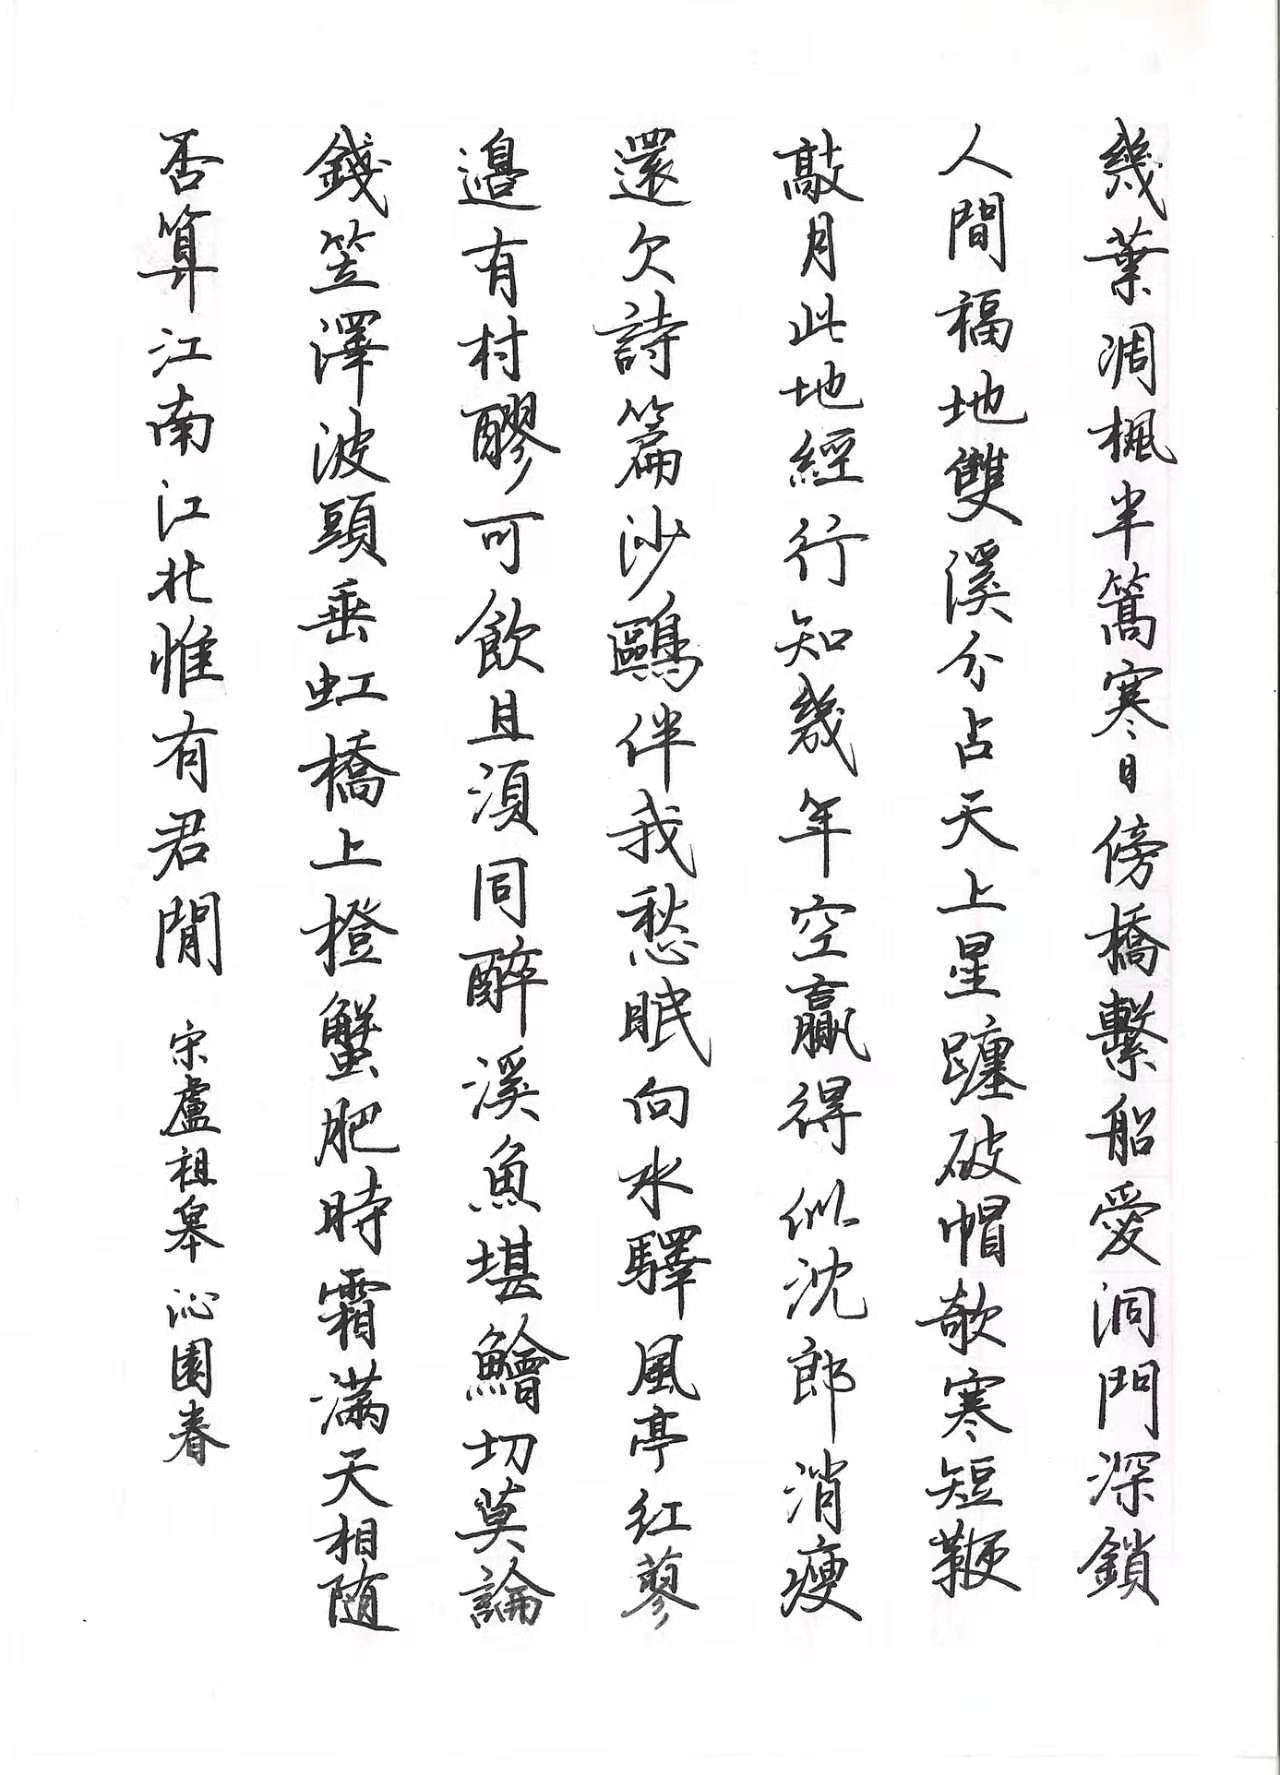 幾葉凋楓半篙寒日傍橋繫船愛洞門深鎖
人間福地雙溪分占天上星躔破帽欹寒短鞭
敲月此地經行知幾年空贏得似沈郎消瘦
還欠詩篇沙鷗伴我愁眠向水驛風亭紅蓼
邊有村醪可飲且須同醉溪魚堪鱠切莫論
錢笠澤波頭垂虹橋上橙蟹肥時霜滿天相随
否算江南江北惟有君閒
宋盧祖皋沁園春